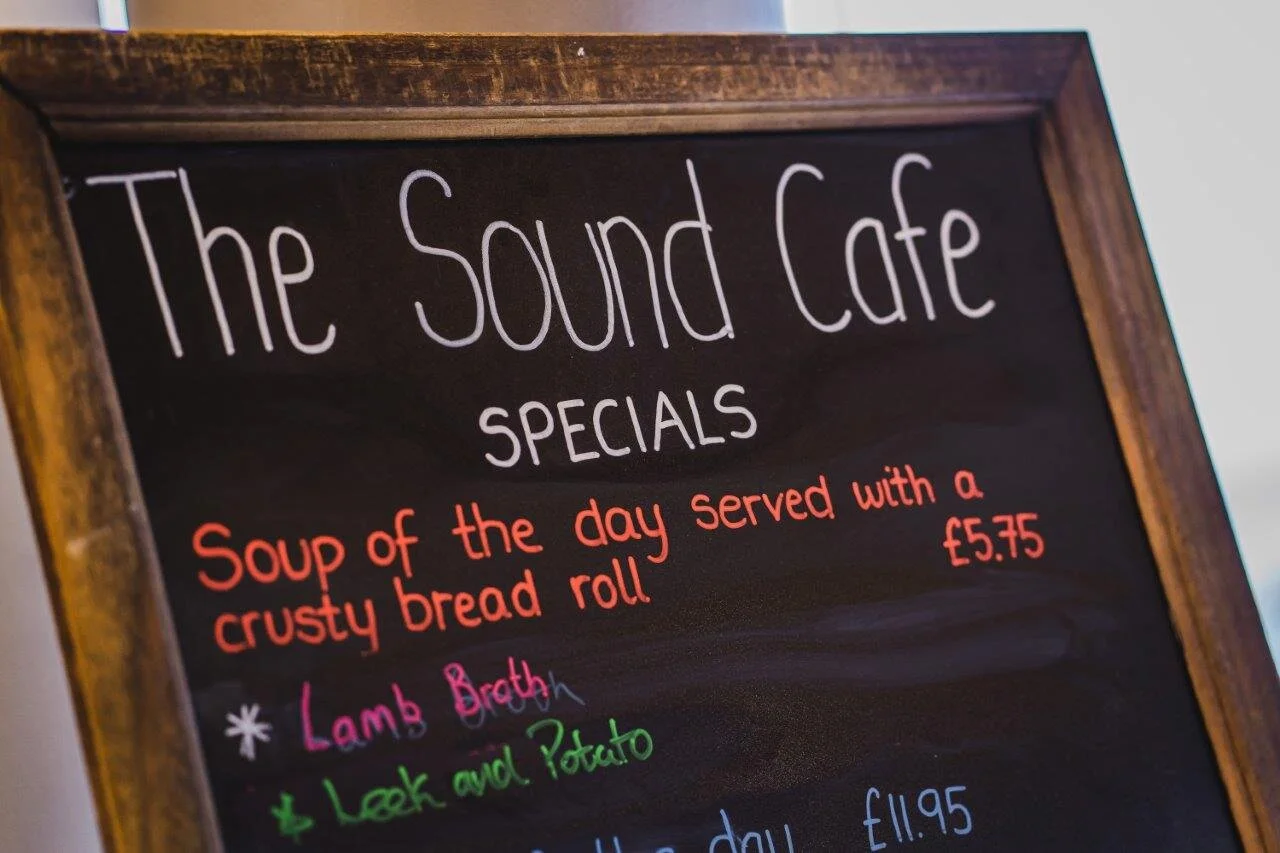 The Sound Cafe
SPECIALS
Soup of the day served with a
crusty bread roll £5.75
* Lamb Broth
* Leek and Potato
the day £11.95